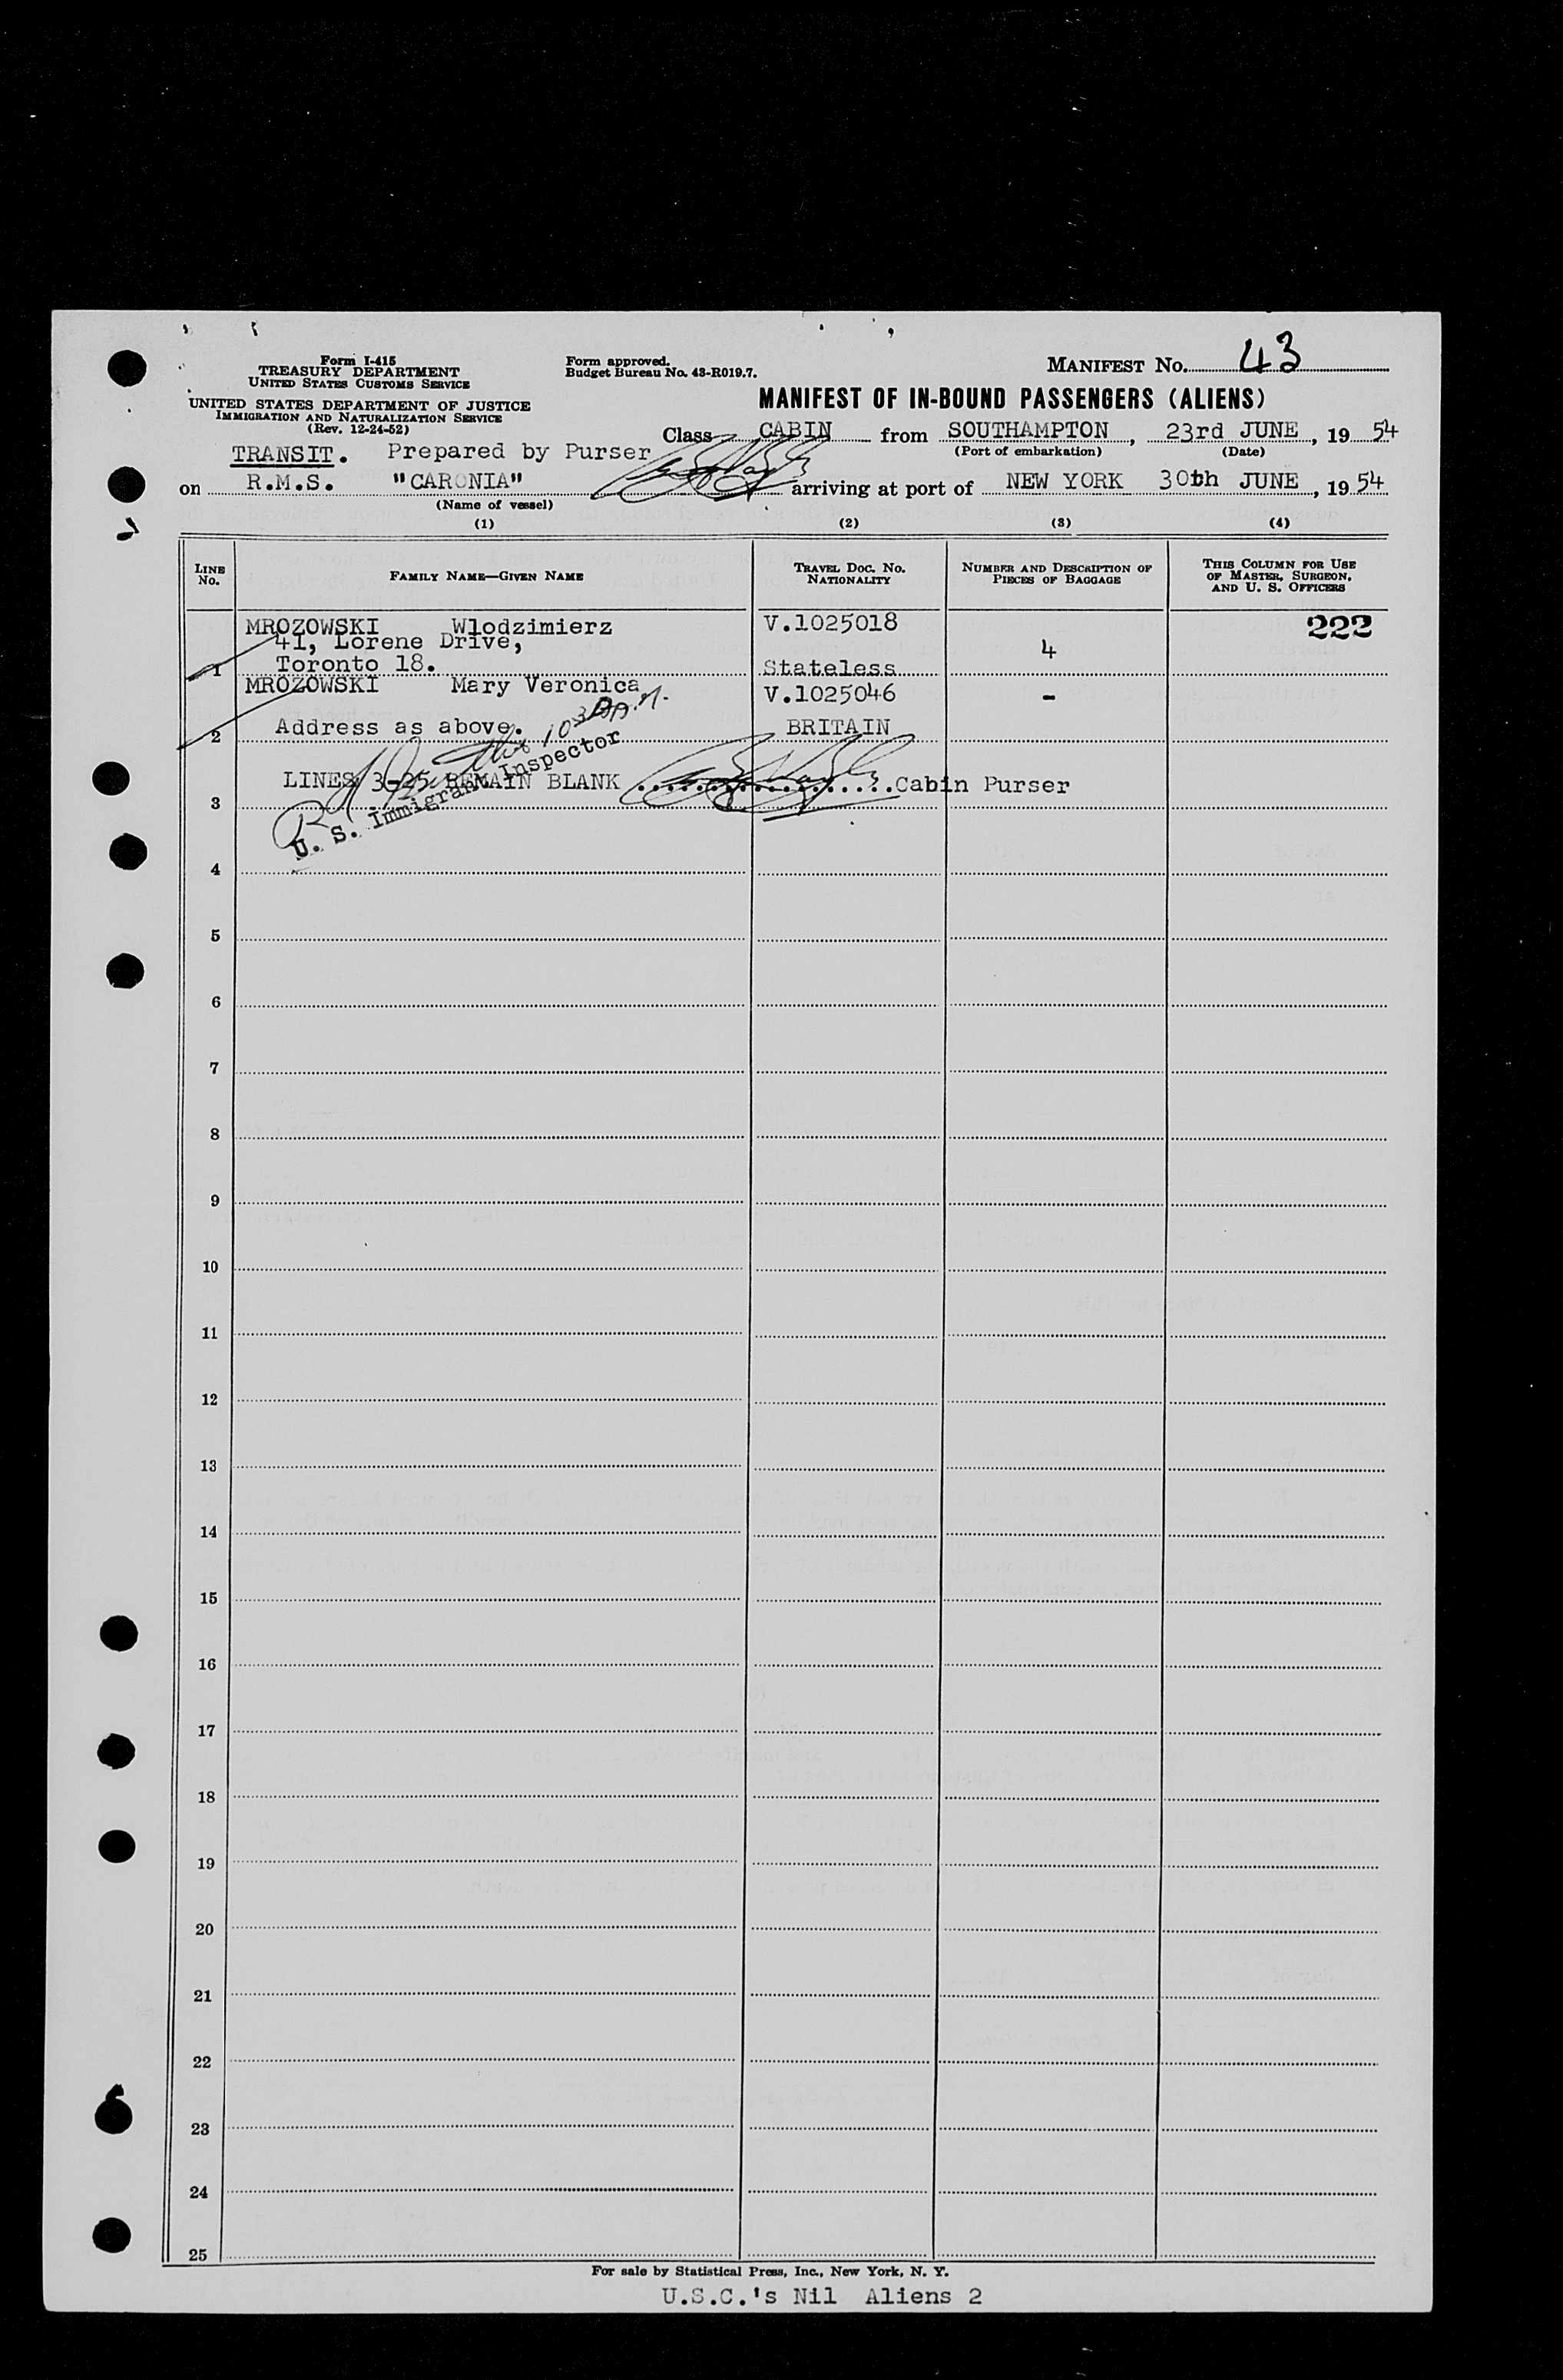 Form I-415
TREASURY DEPARTMENT
UNITED STATES CUSTOMS SERVICE
UNITED STATES DEPARTMENT OF JUSTICE
IMMIGRATION AND NATURALIZATION SERVICE
(Rev. 12-24-52)
Form approved.
Budget Bureau No. 43-R019.7.
MANIFEST No. 43
MANIFEST OF IN-BOUND PASSENGERS (ALIENS)
Class CABIN from SOUTHAMPTON, 23rd JUNE, 19 54
(Port of embarkation) (Date)
TRANSIT. Prepared by Purser
on R.M.S. "CARONIA" arriving at port of NEW YORK 30th JUNE, 19 54
(Name of vessel)
(1) (2) (3) (4)
LINE NO. FAMILY NAME—GIVEN NAME TRAVEL DOC. NO. NATIONALITY NUMBER AND DESCRIPTION OF PIECES OF BAGGAGE THIS COLUMN FOR USE OF MASTER, SURGEON, AND U. S. OFFICERS
MROZOWSKI Wlodzimierz V.1025018 222
41, Lorene Drive, 4
1 Toronto 18. Stateless
MROZOWSKI Mary Veronica V.1025046 -
2 Address as above. BRITAIN
LINES 3-25 REMAIN BLANK ....................Cabin Purser
U. S. Immigrant Inspector
3
4
5
6
7
8
9
10
11
12
13
14
15
16
17
18
19
20
21
22
23
24
25
For sale by Statistical Press, Inc., New York, N. Y.
U.S.C.'s Nil Aliens 2